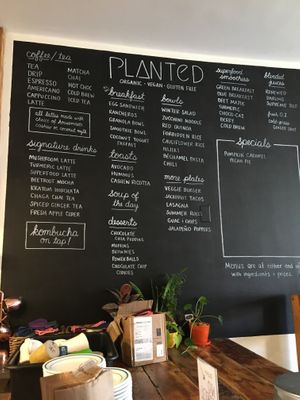 coffee/tea
TEA
DRIP
ESPRESSO
AMERICANO
CAPPUCCINO
LATTE
MATCHA
CHAI
HOT CHOC
COLD BREW
ICED TEA
all lattes made with
choice of almond milk
cashew or coconut mylk
signature drinks
MUSHROOM LATTE
TURMERIC LATTE
SUPERFOOD LATTE
BEETROOT MOCHA
KRATOM HORCHATA
CHAGA CHAI TEA
SPICED GINGER TEA
FRESH APPLE CIDER
kombucha
on tap!
PLANTED
ORGANIC • VEGAN • GLUTEN FREE
breakfast
EGG SANDWICH
RANCHEROS
GRANOLA BOWL
SMOOTHIE BOWL
COCONUT YOGURT
CHIA PUDDING
toasts
AVOCADO
HUMMUS
CASHEW RICOTTA
soup
of the
day
desserts
CHOCOLATE
CHIA PUDDING
MUFFINS
BROWNIES
POWER BALLS
CHOCOLATE CHIP
COOKIES
bowls
WINTER SALAD
ZUCCHINI NOODLE
RED QUINOA
FORBIDDEN RICE
CAULIFLOWER RICE
MISO
BECHAMEL PASTA
CHILI
more plates
VEGGIE BURGER
JACKFRUIT TACOS
LASAGNA
SUMMER ROLL
GUAC + CHIPS
JALAPEÑO POPPERS
superfood
smoothies
GREEN BREAKFAST
BLUE BREAKFAST
BEET MATCHA
TURMERIC
CHOCO-CAT
CHAI
COLD BREW
blended
juices
RENEWAL
DARLING
SUPREME
specials
PUMPKIN CARAMEL
PECAN PIE
MENUS ARE AT EITHER END
WITH INGREDIENTS + PRICES